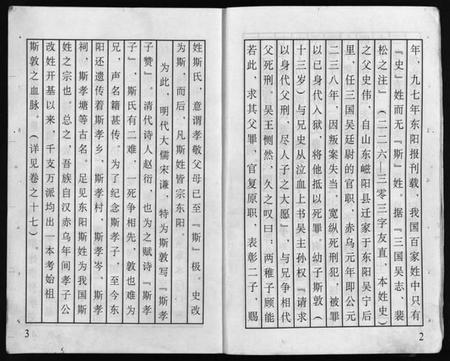 年，九七年东阳报刊载，我国百家姓中只有
『史』姓而无『斯』姓。据『三国吴志、裴
松之注』（二二六—三零三字友直，本姓史）
之父史伟，自山东嵫阳县迁家于东阳吴宁后
里，任三国吴廷尉的官职，赤乌元年即公元
二三八年，因叛案失当，宽纵死刑犯，被罪
以已身代入狱，将他抵以死罪，幼子斯敦（
十三岁）与兄史从泣血上书吴王孙权『请求
以身代父刑，尽人子之大愿』，与兄争相代
父死刑。吴王恻然，久之叹曰：两稚子顾能
若此，求其父罪，官复原职，表彰二子，赐
2
姓斯氏，意谓孝敬父母已至『斯』极。史改
为斯，而后，凡斯姓皆宗东阳。
为此，明代大儒宋谦，特为斯敦写『斯孝
子赞』。清代诗人赵衍，也为之赋诗『斯孝
子』，斯氏有二难，一死争相先，敦也难为
兄，声名籍甚传。为了纪念斯孝子，至今东
阳还遗传着斯孝乡、斯孝村，斯孝岑、斯孝
祠、斯孝塘等古名。足见东阳斯姓为我国斯
姓之宗也。总之，吾族自汉赤乌年间孝子公
改姓开基以来，千支万派均出一本考始祖
斯敦之血脉。（详见卷之十七）
3